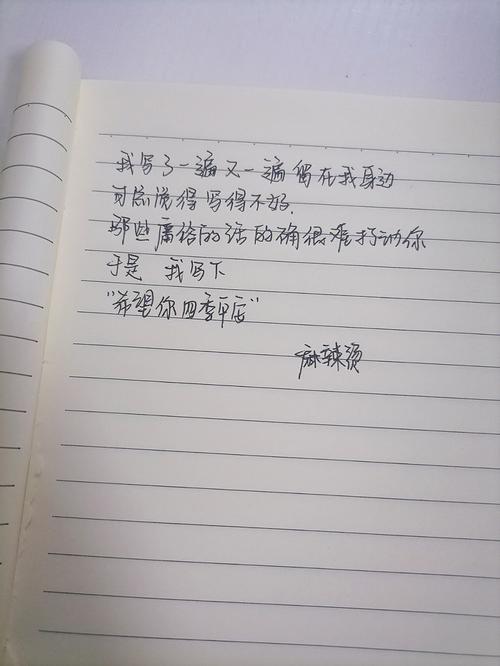 我写了一遍又一遍留在我身边
可总觉得写得不好.
那些庸俗的话的确很难打动你
于是 我写下
"希望你四季平安"
麻辣烫